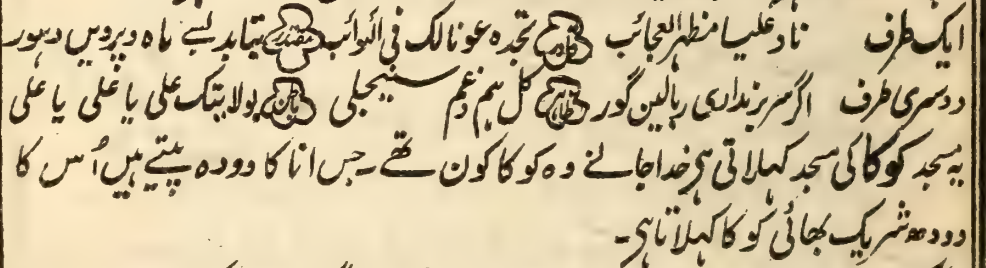 ایک طرف ناد علیا مظہر العجائب تجدہ عونا لک فی النوائب مقتدر بتابد بسے ماہ و پرویں و ہور
دوسری طرف اگر سر بزنداری ز بالین گور ظاہر کل ہم و غم سینجلی باطن بولایتک علی یا علی یا علی یا علی
یہ مسجد کوکا کی مسجد کہلاتی ہی خدا جانے وہ کوکا کون تھے۔ جس انا کا دودہ پیتے ہیں اُس کا
دودھ شریک بھائی کوکا کہلاتا ہی۔